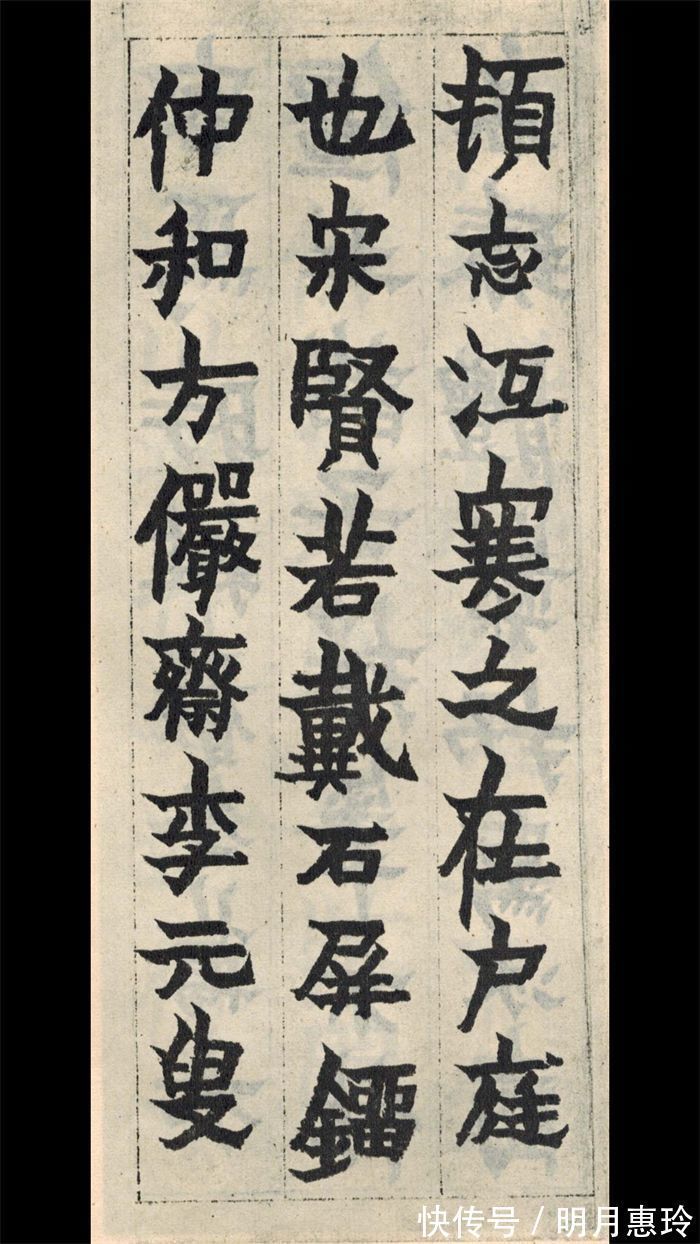 頓忘沍寒之在户庭
也宋賢若戴石屏鎦
仲和方儼齋李元叟
快传号/明月惠玲